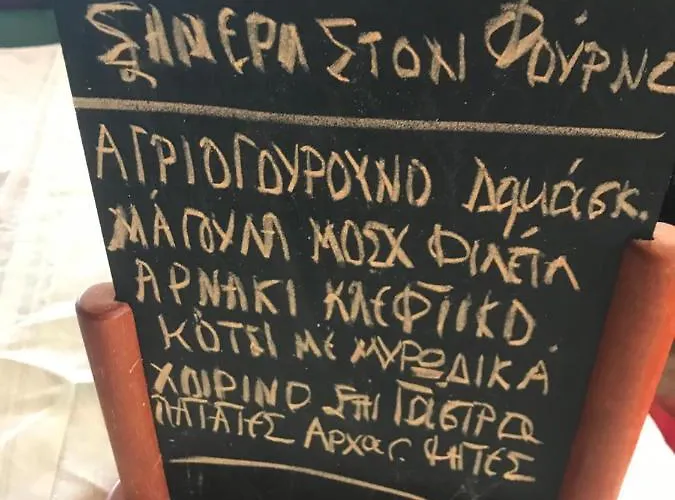 ΣΗΜΕΡΑ ΣΤΟΝ ΦΟΥΡΝΟ
ΑΓΡΙΟΓΟΥΡΟΥΝΟ Δαμάσκ.
ΜΆΓΟΥΛΑ ΜΟΣΧ ΦΙΛΈΤΑ
ΑΡΝΑΚΙ ΚΛΕΦΤΙΚΟ
ΚΌΤΣΙ ΜΕ ΜΥΡΩΔΙΚΆ
ΧΟΙΡΙΝΟ ΣΤΗ ΓΑΣΤΡΑ
ΠΑΤΑΤΕΣ ΑΡΧΑΣ. ΨΗΤΕΣ